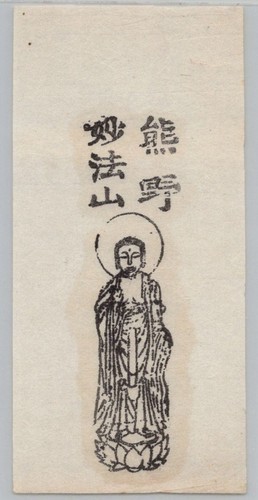 熊野
妙法山